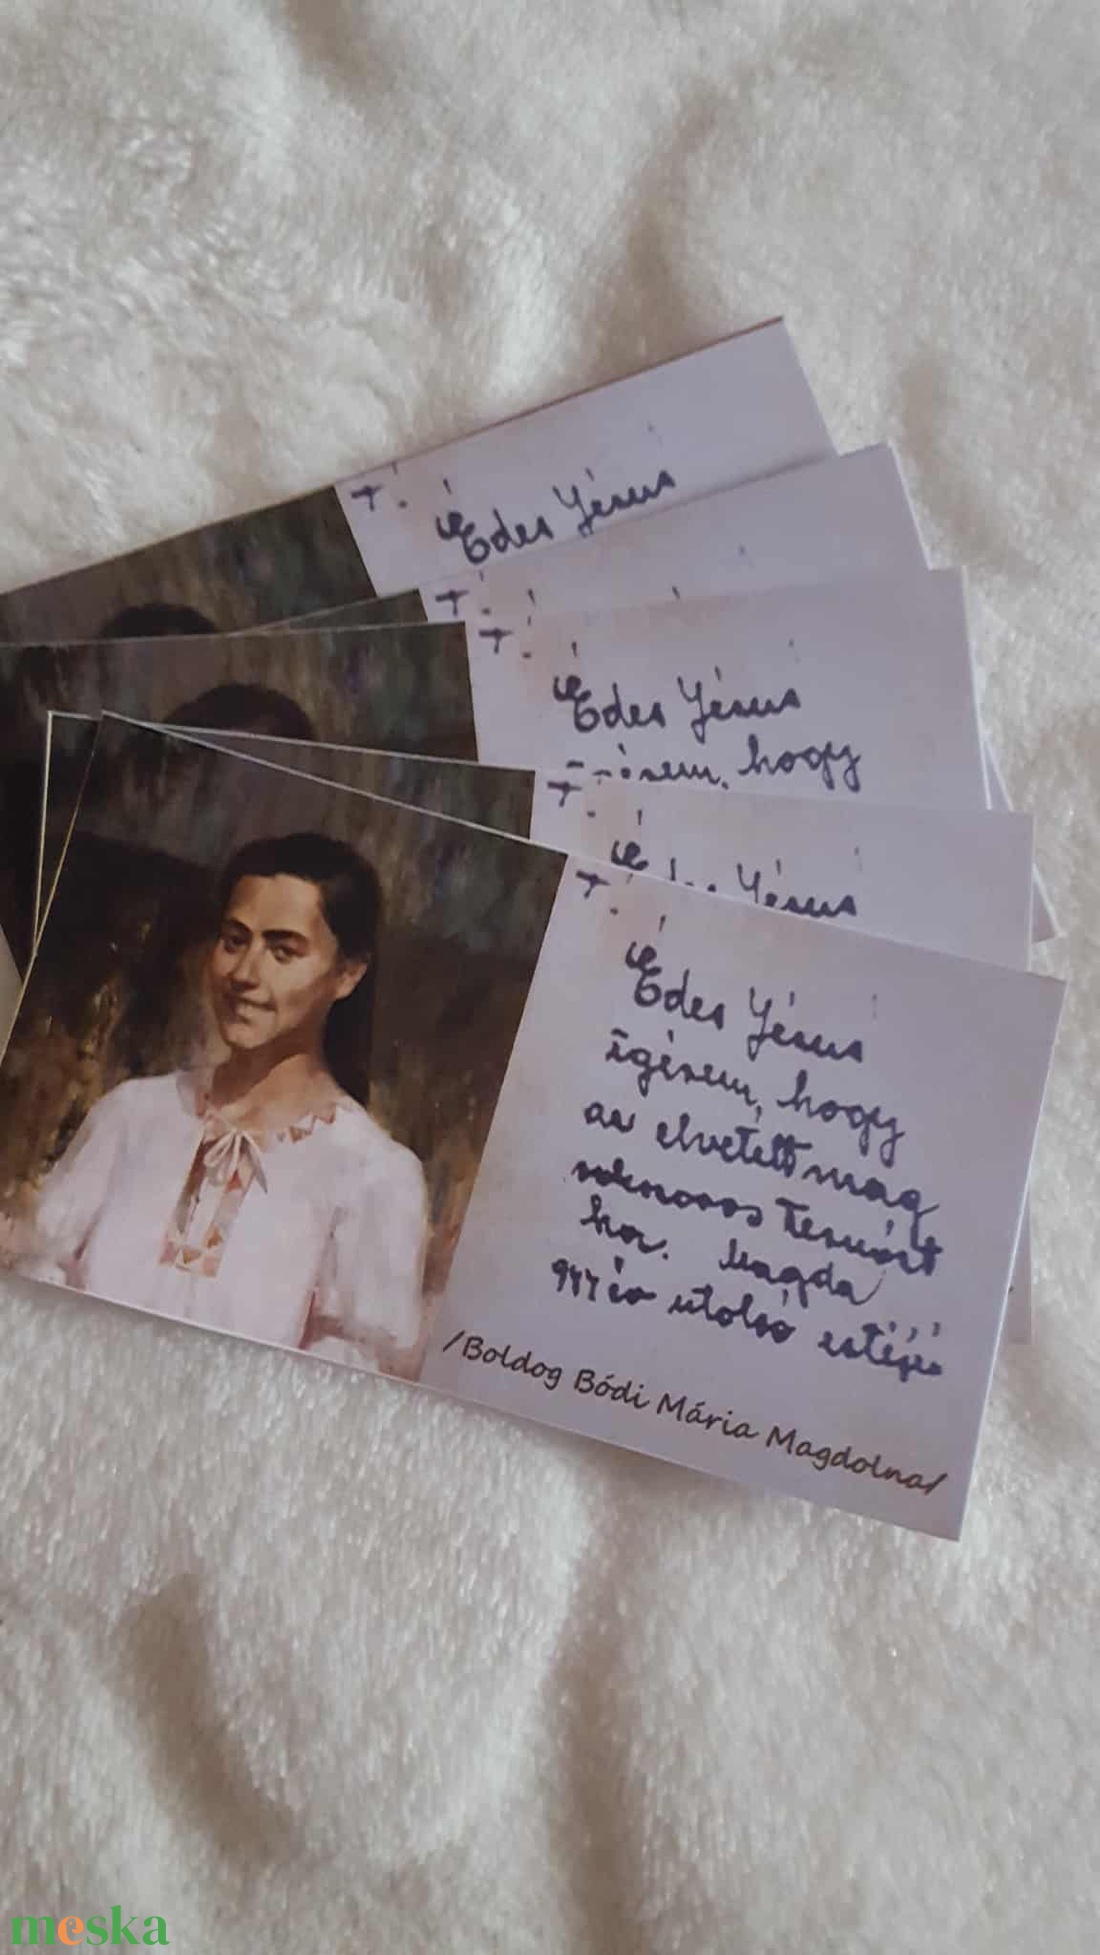 T. Édes Jézus
T.
T. Édes Jézus
hogy
T. Jézus
T.
Édes Jézus
igérem, hogy
az elvetett mag
sokszoros termést
hoz. Magda
944 év utolsó estéjén
/Boldog Bódi Mária Magdolna/
meska